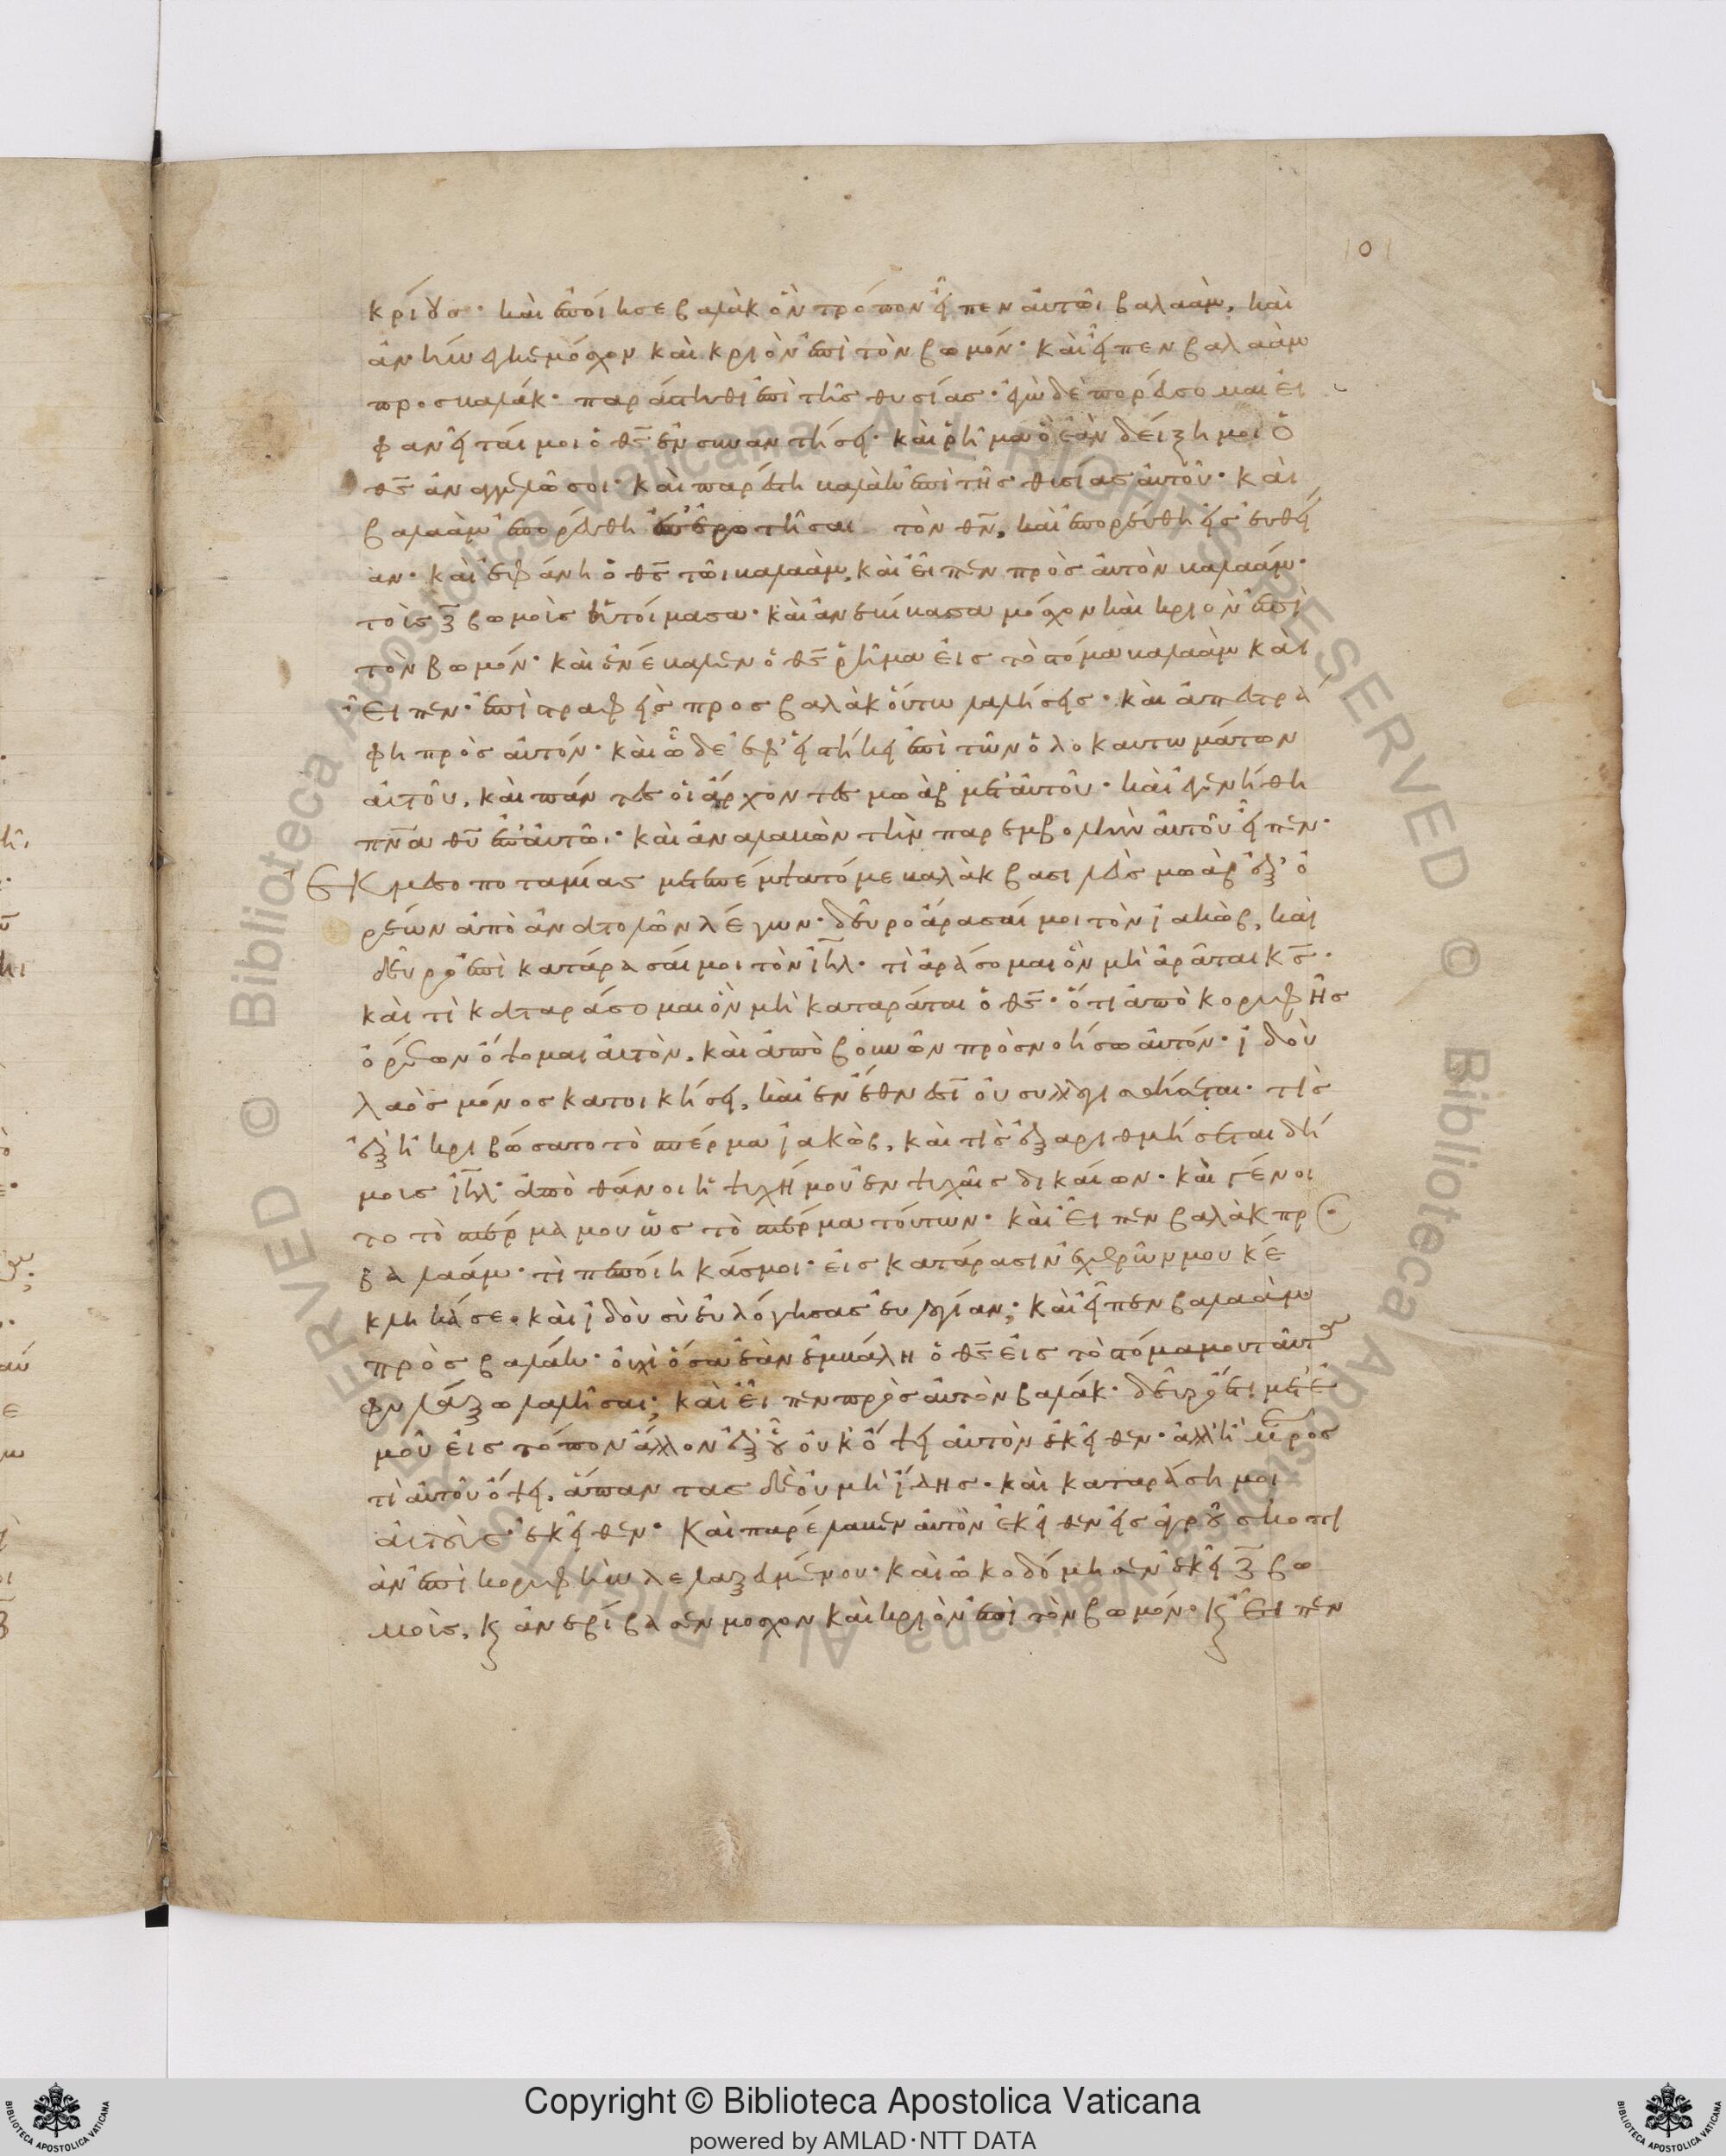 101
κριους· καὶ ἐποίησε βαλὰκ ὃν τρόπον εἶπεν αὐτῶι βαλαάμ, καὶ
ἀνήνεγκε μόσχον καὶ κριὸν ἐπὶ τὸν βωμόν· καὶ εἶπεν βαλαὰμ
προς βαλάκ· παράστηθι ἐπὶ τῆς θυσίας· ἐγὼ δὲ πορεύσομαι εἰ
φανεῖταί μοι ὁ θς̅ ἐν συναντήσει· καὶ ῥῆμα ὃ ἐὰν δείξη μοι ὁ
θς̅ ἀναγγελῶ σοι· καὶ παρέστη βαλὰκ ἐπὶ τῆς θυσίας αὐτοῦ· καὶ
βαλαὰμ ἐπορεύθη ἐπερωτῆσαι τὸν θν̅, καὶ ἐπορεύθη εἰς εὐθεῖ
αν· καὶ ἐφάνη ὁ θς̅ τῶι βαλαάμ, καὶ εἶπεν πρὸς αὐτὸν βαλαάμ·
τοὺς ζ̅ βωμοὺς ἡτοίμασα· καὶ ἀνεβίβασα μόσχον καὶ κριὸν ἐπὶ
τὸν βωμόν· καὶ ἐνέβαλεν ὁ θς̅ ῥῆμα εἰς τὸ στόμα βαλαὰμ καὶ
εἶπεν· ἐπιστραφεὶς προς βαλὰκ οὕτω λαλήσεις· καὶ ἀπεστρά
φη πρὸς αὐτόν· καὶ ὧδε ἐφ' εἱστήκει ἐπὶ τῶν ὁλοκαυτωμάτων
αὐτοῦ, καὶ πάντες οἱ ἄρχοντες μωὰβ μετ' αὐτοῦ· καὶ ἐγενήθη
πν̅α θυ̅ ἐπ' αὐτῶι· καὶ ἀναλαβὼν τὴν παρεμβολὴν αὐτοῦ εἶπεν·
Ἐκ μεσοποταμίας μετεπέμψατό με βαλὰκ βασιλεὺς μωὰβ ἐξ ὀ
ρέων ἀπὸ ἀνατολῶν λέγων· δεῦρο ἄρασαί μοι τὸν ἰακὼβ, καὶ
δεῦρο ἐπὶ κατάρασαί μοι τὸν ιη̅λ· τὶ ἀράσομαι ὃν μὴ ἀρᾶται κς̅·
καὶ τὶ καταράσομαι ὃν μὴ καταρᾶται ὁ θς̅· ὅτι ἀπὸ κορυφῆς
ὀρέων ὄψομαι αὐτὸν, καὶ ἀπὸ βουνῶν προσνοήσω αὐτόν· ἰδοὺ
λαὸς μόνος κατοικήσει, καὶ ἐν ἔθνεσι οὐ συλλογισθήσεται· τὶς
ἐξηκριβώσατο τὸ σπέρμα ἰακὼβ, καὶ τὶς ἐξαριθμήσεται δή
μους ιη̅λ· ἀποθάνοι ἡ ψυχή μου ἐν ψυχαῖς δικαίων· καὶ γένοι
το τὸ σπέρμα μου ὡς τὸ σπέρμα τούτων· καὶ εἶπεν βαλὰκ πρ
βαλαάμ· τὶ πεποίηκάς μοι· εἰς κατάρασιν ἐχθρῶν μου κέ
κληκά σε· καὶ ἰδοὺ σὺ εὐλόγησας εὐλογίαν; καὶ εἶπεν βαλαὰμ
πρὸς βαλάκ· οὐχὶ ὅσα ἐὰν ἐμβάλη ὁ θς̅ εἰς τὸ στόμα μου ταῦτα
φυλάξω λαλῆσαι; καὶ εἶπεν πρὸς αὐτὸν βαλάκ· δεῦρο ἔτι μετ' ἐ
μοῦ εἰς τόπον ἄλλον ἐξ οὗ οὐκ ὄψει αὐτὸν ἐκεῖθεν· ἀλλ' ἢ μέρος
τὶ αὐτοῦ ὄψει, ἅπαντας δὲ οὐ μὴ ἴδης· καὶ κατάρασή μοι
αὐτοὺς ἐκεῖθεν· Καὶ παρέλαβεν αὐτὸν ἐκεῖθεν εἰς ἀγροῦ σκοπι
ὰν ἐπὶ κορυφὴν λελαξευμένου· καὶ ὠκοδόμησεν ἐκεῖ ζ̅ βω
μοὺς, κ ἀνεβίβασεν μοσχον καὶ κριὸν ἐπὶ τὸν βωμόν· κ εἶπεν
Copyright © Biblioteca Apostolica Vaticana
powered by AMLAD·NTT DATA